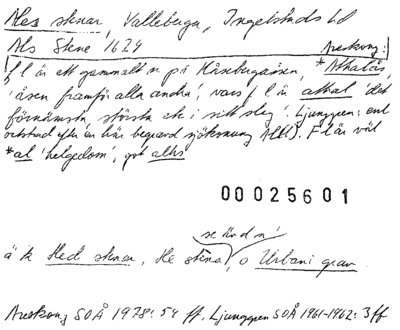 Ales stenar, Valleberga, Ingelstads hd
Als Stene 1624 Areskoug:
f l är ett gammalt n på Kåsebergaåsen, *Athalås,
'åsen framför alla andra', vars f l är athal 'det
förnämsta, största etc i sitt slag'. Ljunggren: enl
ortstrad efter en här begravd sjökonung Ale(?). F l är väl
*al 'helgedom', got alhs
00025601
se ävd n!
ä k Hed stenar, He stena, o Urbani grav
Areskoug SOÅ 1978: 54 ff. Ljunggren SOÅ 1961-1962: 3 ff